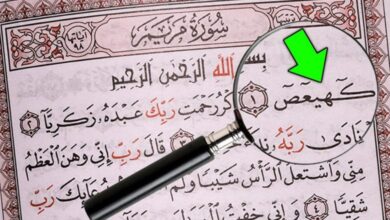 سُورَةُ مَرْيَمَ
آيَاتُهَا ٩٨
بِسْمِ اللَّهِ الرَّحْمَٰنِ الرَّحِيمِ
كٓهيعٓصٓ ١
ذِكْرُ رَحْمَتِ رَبِّكَ عَبْدَهُ زَكَرِيَّا ٢
نَادَىٰ رَبَّهُ
٣ قَالَ رَبِّ إِنِّي وَهَنَ الْعَظْمُ
مِنِّي وَاشْتَعَلَ الرَّأْسُ شَيْبًا وَلَمْ
بِدُعَائِكَ رَبِّ
شَقِيًّا ٤